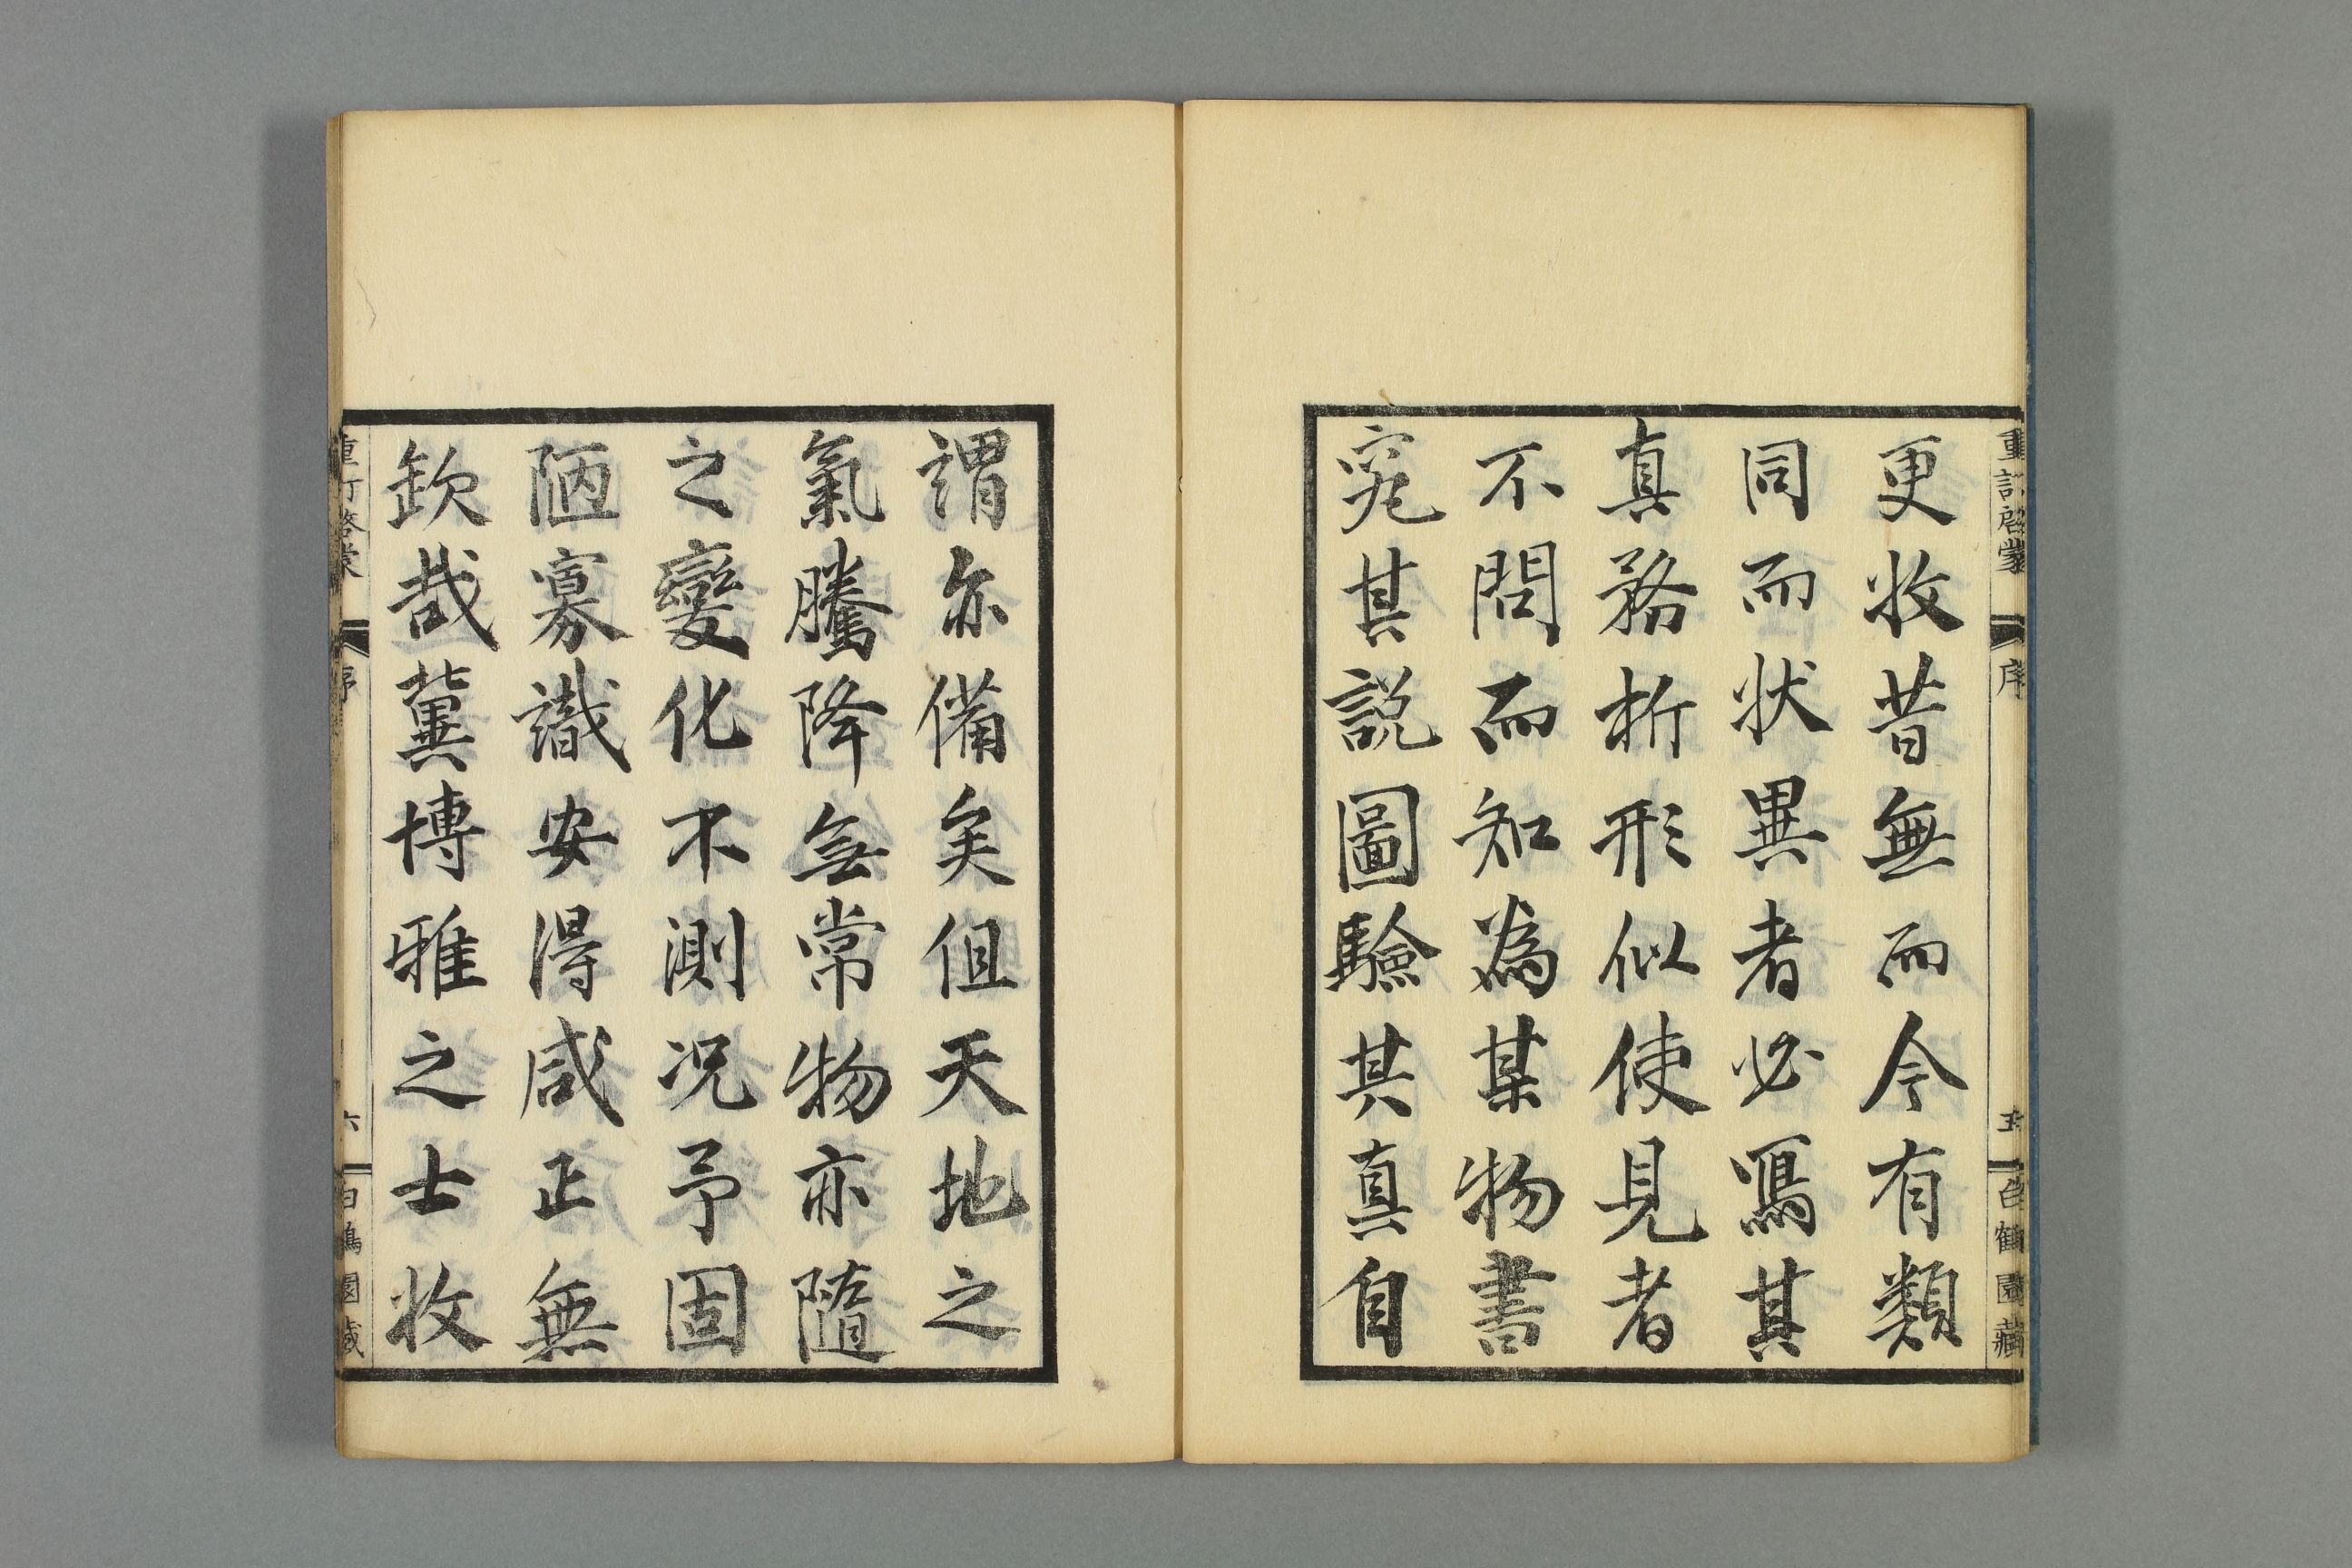 重訂啓蒙 序 五 白鶴園藏
更牧昔無而今有類
同而状異者必寫其
真務析形似使見者
不問而知為某物書
究其説圖驗其真自
謂亦備矣但天地之
氣騰降無常物亦隨
之變化不測况予固
陋寡識安得咸正無
欽哉冀博雅之士牧
序 六